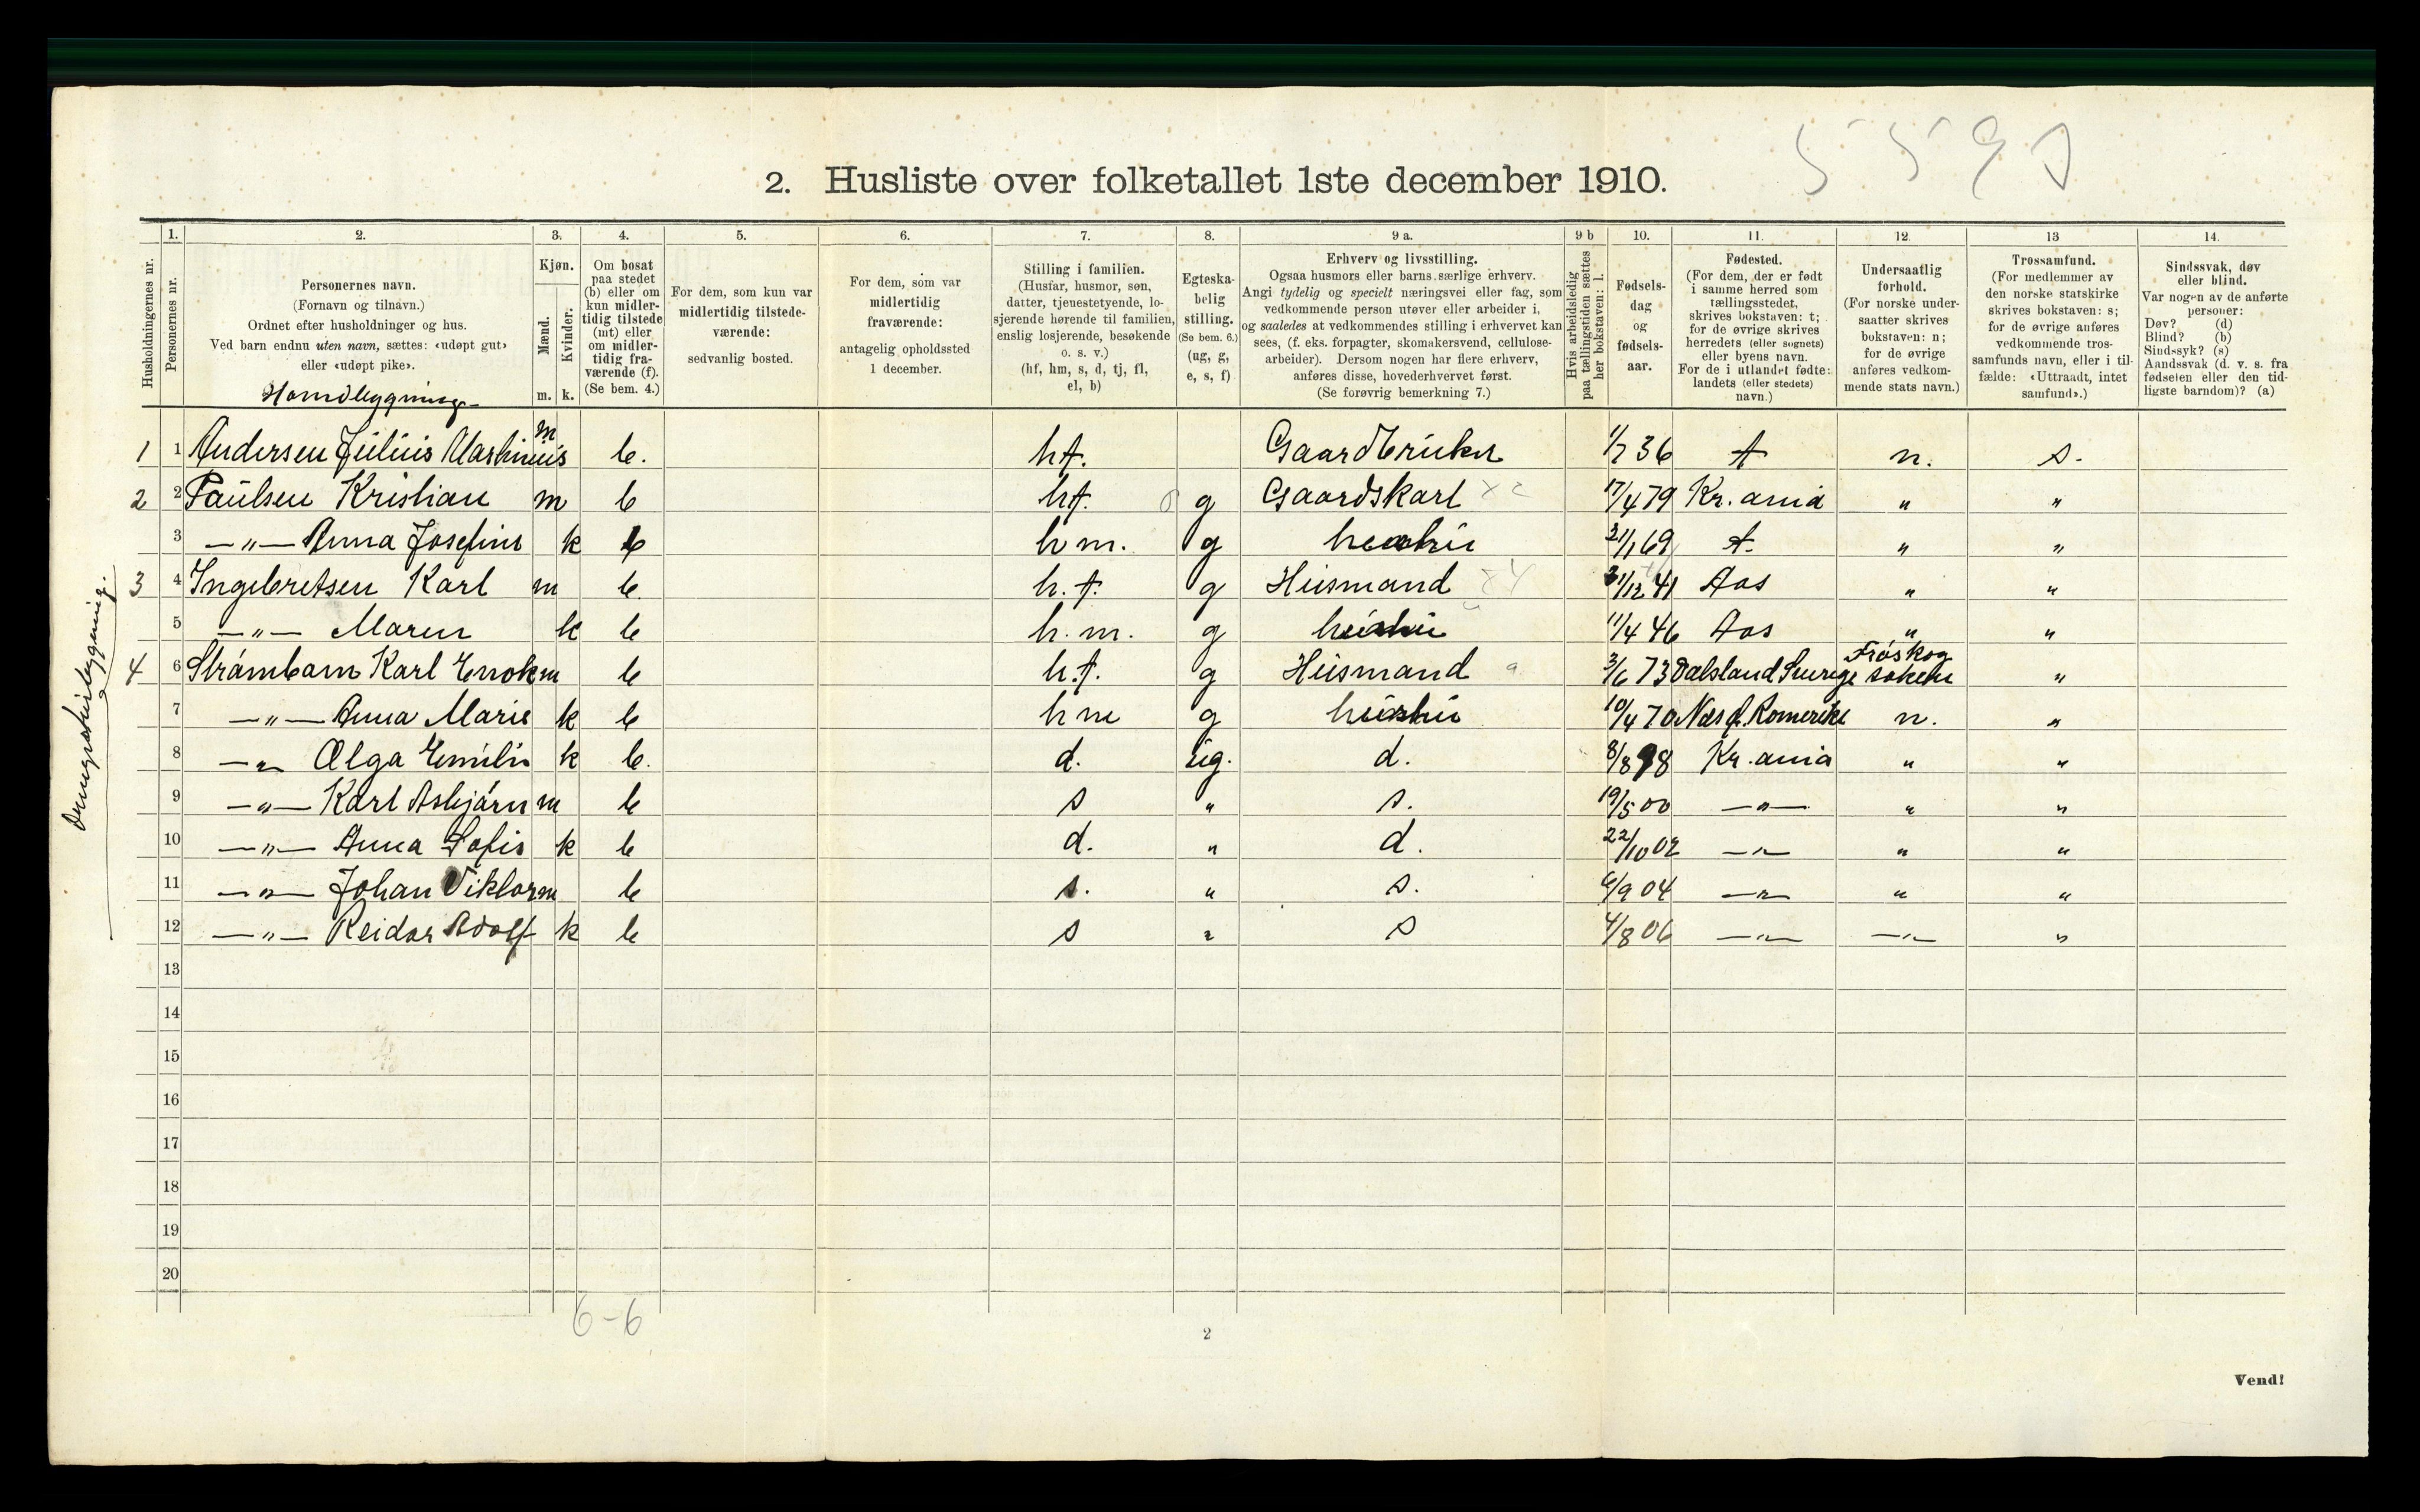 5 5 9
2. Husliste over folketallet 1ste december 1910.
Husholdningernes nr.
1. Personernes nr.
2. Personernes navn.
(Fornavn og tilnavn.)
Ordnet efter husholdninger og hus.
Ved barn endnu uten navn, sættes: «udøpt gut»
eller «udøpt pike».
3. Kjøn.
Mænd. Kvinder.
m. k.
4. Om bosat
paa stedet
(b) eller om
kun midler-
tidig tilstede
(mt) eller
om midler-
tidig fra-
værende (f).
(Se bem. 4.)
5. For dem, som kun var
midlertidig tilstede-
værende:
sedvanlig bosted.
6. For dem, som var
midlertidig
fraværende:
antagelig opholdssted
1 december.
7. Stilling i familien.
(Husfar, husmor, søn,
datter, tjenestetyende, lo-
sjerende hørende til familien,
enslig losjerende, besøkende
o. s. v.)
(hf, hm, s, d, tj, fl,
el, b)
8. Egteska-
belig
stilling.
(Se bem. 6.)
(ug, g,
e, s, f)
9 a. Erhverv og livsstilling.
Ogsaa husmors eller barns særlige erhverv.
Angi tydelig og specielt næringsvei eller fag, som
vedkommende person utøver eller arbeider i,
og saaledes at vedkommendes stilling i erhvervet kan
sees, (f. eks. forpagter, skomakersvend, cellulose-
arbeider). Dersom nogen har flere erhverv,
anføres disse, hovederhvervet først.
(Se forøvrig bemerkning 7.)
9 b Hvis arbeidsledig
paa tællingstiden sættes
her bokstaven: l.
10. Fødsels-
dag
og
fødsels-
aar.
11. Fødested.
(For dem, der er født
i samme herred som
tællingsstedet,
skrives bokstaven: t;
for de øvrige skrives
herredets (eller sognets)
eller byens navn.
For de i utlandet fødte:
landets (eller stedets)
navn.)
12. Undersaatlig
forhold.
(For norske under-
saatter skrives
bokstaven: n;
for de øvrige
anføres vedkom-
mende stats navn.)
13 Trossamfund.
(For medlemmer av
den norske statskirke
skrives bokstaven: s;
for de øvrige anføres
vedkommende tros-
samfunds navn, eller i til-
fælde: «Uttraadt, intet
samfund».)
14. Sindssvak, døv
eller blind.
Var nogen av de anførte
personer:
Døv? (d)
Blind? (b)
Sindssyk? (s)
Aandssvak (d. v. s. fra
fødselen eller den tid-
ligste barndom)? (a)
1 1 Andersen Julius Martinius m b. hf. Gaardbruker 1/7 36 t n. s.
2 2 Paulsen Kristian m b hf. g Gaardskarl 17/4 79 Kr.ania " "
3 —"— Anna Josefine k b hm. g hustru 21/1 69 t. " "
3 4 Ingebretsen Karl m b h.f. g Husmand 31/12 41 Aas " "
5 —"— Maren k b h.m. g hustru 11/4 46 Aas " "
4 6 Strömbom Karl Enok m b h.f. g Husmand 3/6 73 Dalsland Sverige Fröskog soken "
7 —"— Anna Marie k b hm g hustru 10/4 70 Næs p. Romerike n. "
8 —"— Olga Emilie k b. d. ug. d. 8/8 98 Kr.ania " "
9 —"— Karl Asbjörn m b s " s. 19/5 00 —"— " "
10 —"— Anna Sofie k b d. " d. 22/10 02 —"— " "
11 —"— Johan Viktor m b s. " s. 6/9 04 —"— " "
12 —"— Reidar Adolf k b s " s 4/8 06 —"— —"— "
13
14
15
16
17
18
19
20
6-6
2
Vend!